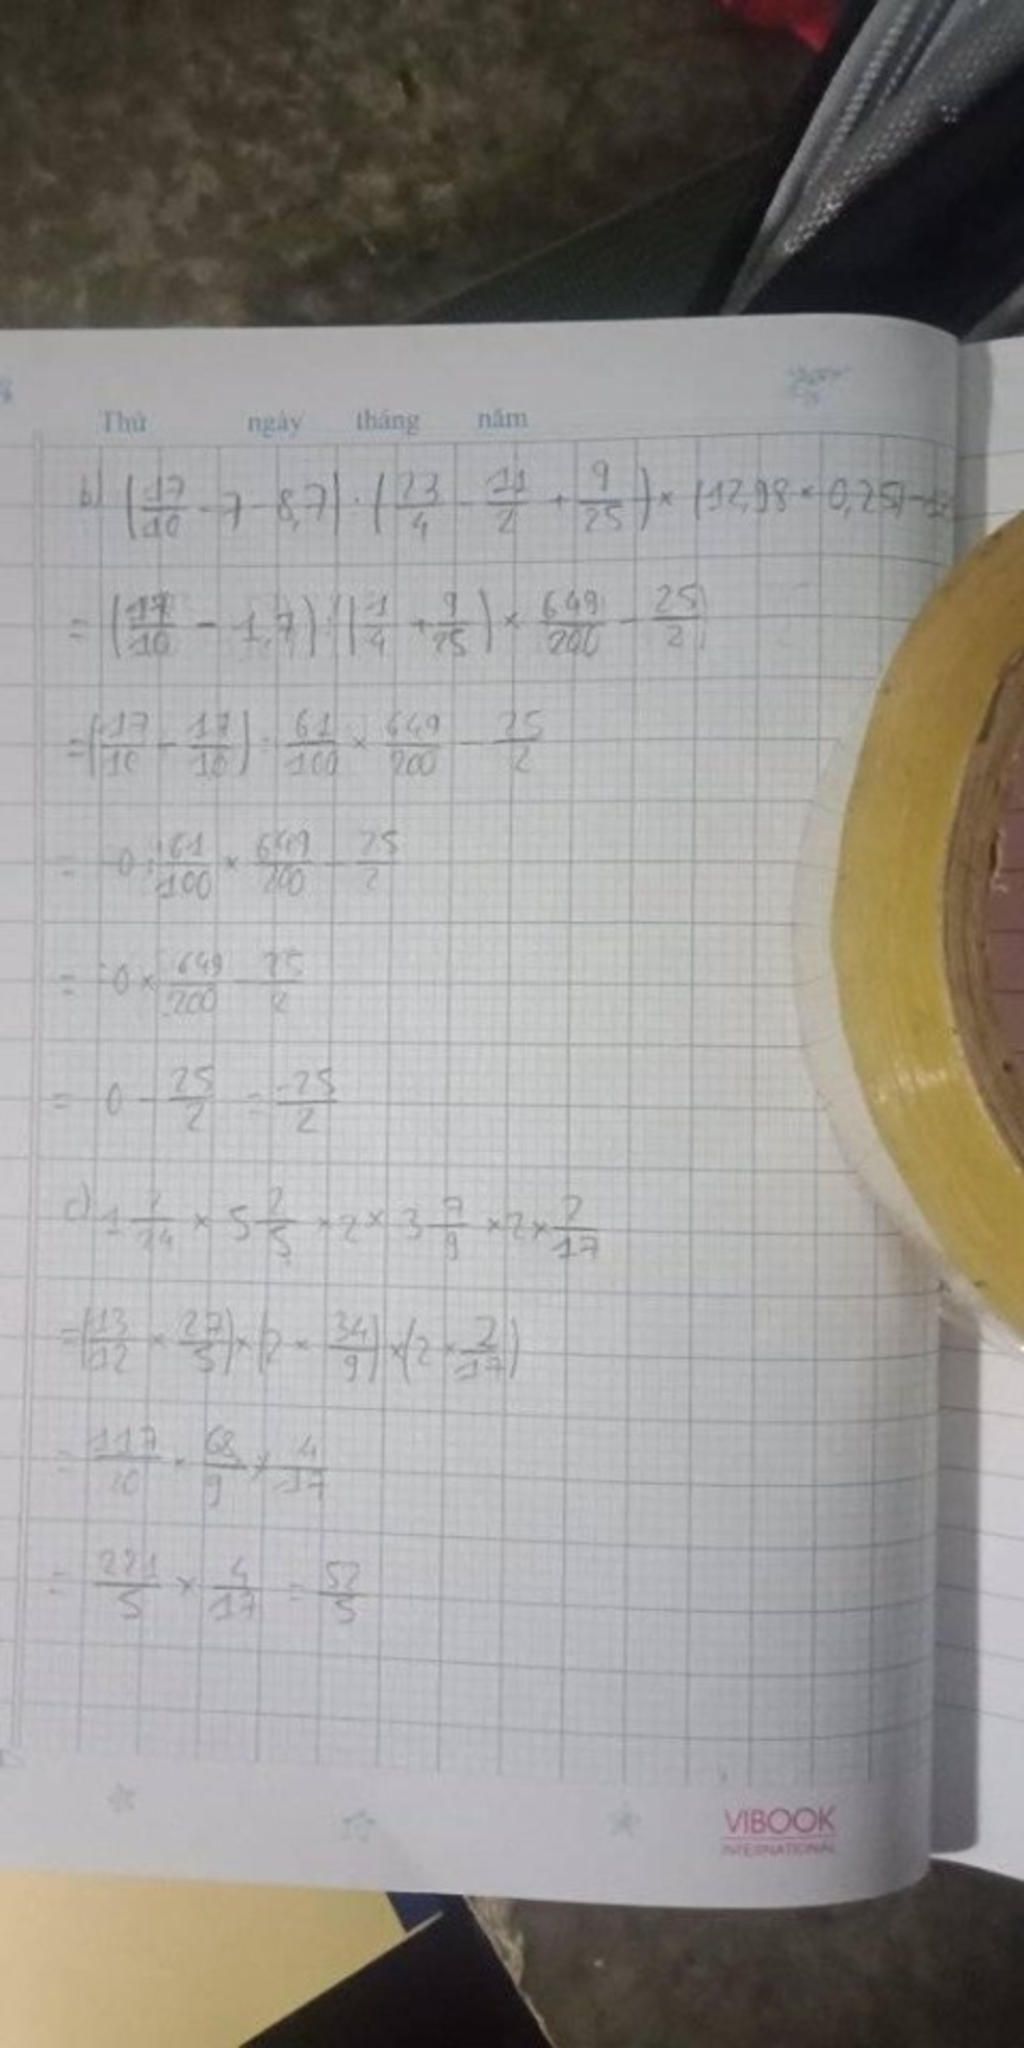 Thứ ngày tháng năm
b) (17/10 - 7 - 8,7) : (23/4 - 11/2 + 9/25) × (12,98 × 0,25) -
= (17/10 - 1,7) : (1/4 + 9/25) × 649/200 - 25/2
= (17/10 - 17/10) : 61/100 × 649/200 - 25/2
= 0 : 61/100 × 649/200 - 25/2
= 0 × 649/200 - 25/2
= 0 - 25/2 = -25/2
c) × 5 2/5 × 2 × 3 7/9 × 2 × 2/17
= (13/12 × 27/5) × (2 × 34/9) × (2 × 2/17)
= 117/20 × 68/9 × 4/17
= 221/5 × 4/17 = 52/5
VIBOOK
INTERNATIONAL